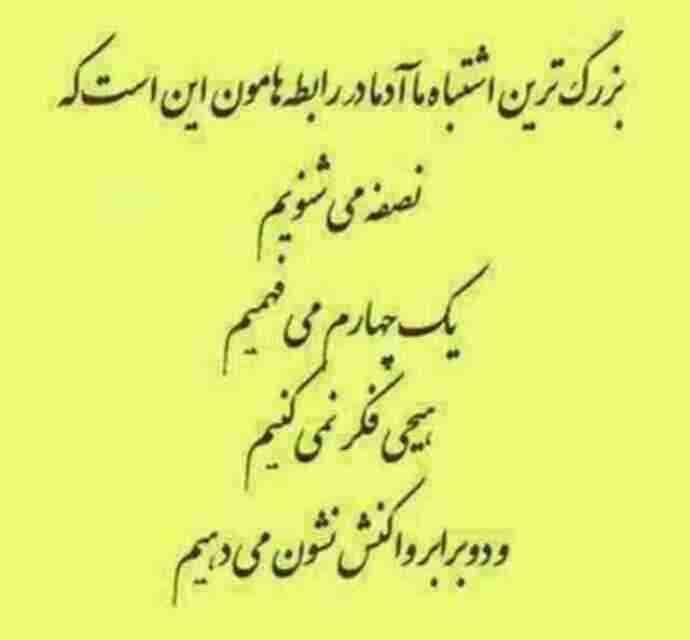 بزرگ ترین اشتباه ما آدما در رابطه هامون این است که
نصفه می شنویم
یک چهارم می فهمیم
هیچی فکر نمی کنیم
و دو برابر واکنش نشون می دهیم